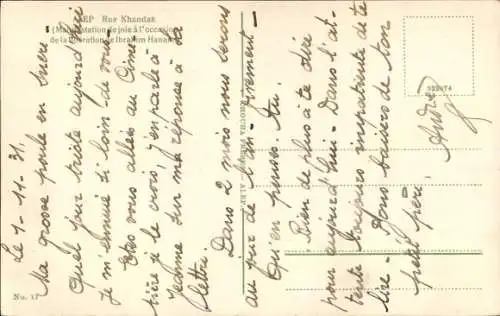 ALEP Rue Khandak
(Manifestation de joie à l'occasion
de la libération de Ibrahim Hanano
Le 1-11-31.
Ma grosse poule en sucre
Quel jour triste aujourd'hui
je m'ennuie si loin de vous
Etes vous allés au Cime
tière je le crois, j'en parle à
Jeanne sur ma réponse à sa
lettre.
Dans 2 mois nous serons
au jour de l'an. Vivement
Qu'en penses-tu.
Rien de plus à te dire
pour aujourd'hui. Dans l'at-
tente toujours impatiente de te
lire. Bons baisers de ton
petit père.
André
No. 17
552074